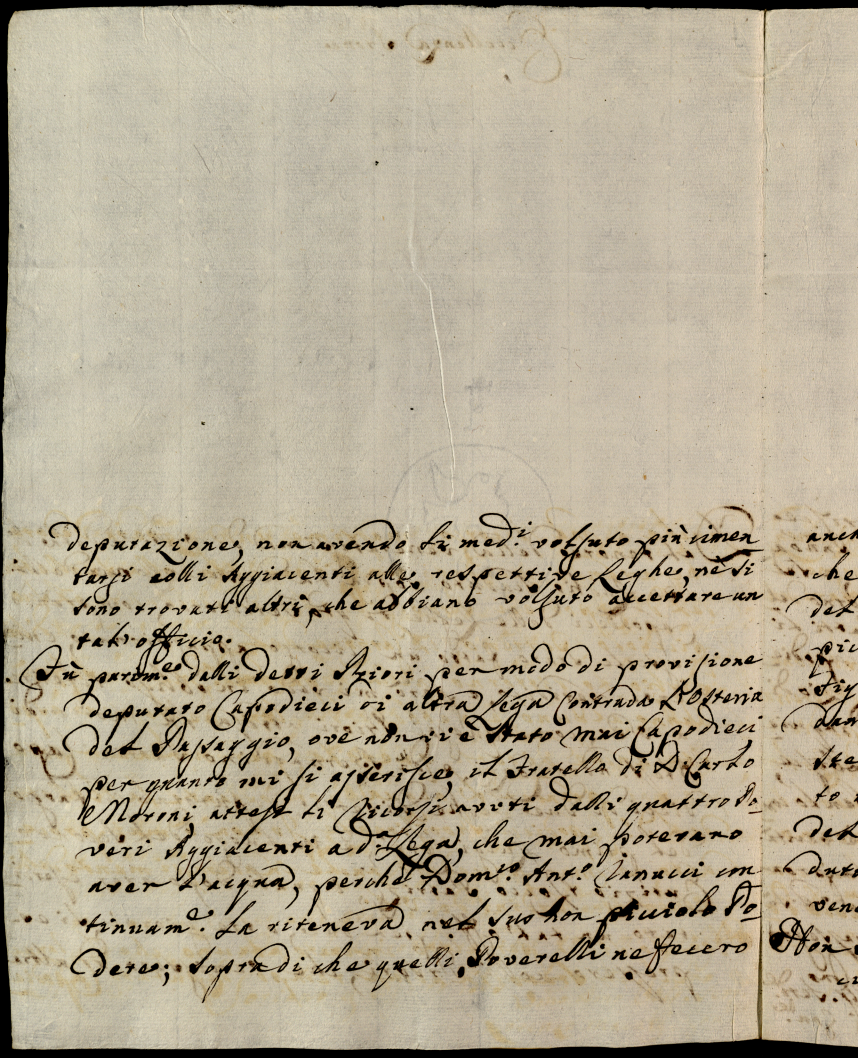 deputazione, non avendo li med.i volsuto più cimen
tarsi colli Aggiacenti alle respettive Leghe, nè si
sono trovati altri, che abbiano volsuto accettare un
tal officio.
Fù parim.e dalli detti Priori per modo di provisione
deputato Capodieci di altra Lega Contrada l'Osteria
del Passaggio, ove non vi è stato mai Capodieci
per quanto mi si asserisce, il Fratello di D. Carlo
Moroni attesi li ricorsi avuti dalli quattro Po-
veri Aggiacenti a d.a Lega, che mai potevano
aver l'acqua, perche Dom.co Ant.o Ianucci con
tinuam.e la riteneva nel suo non picciolo Po-
dere; sopra di che quelli Poverelli ne fecero
anch
che
del
pic
dan
ste
to
del
dut
ven
Non